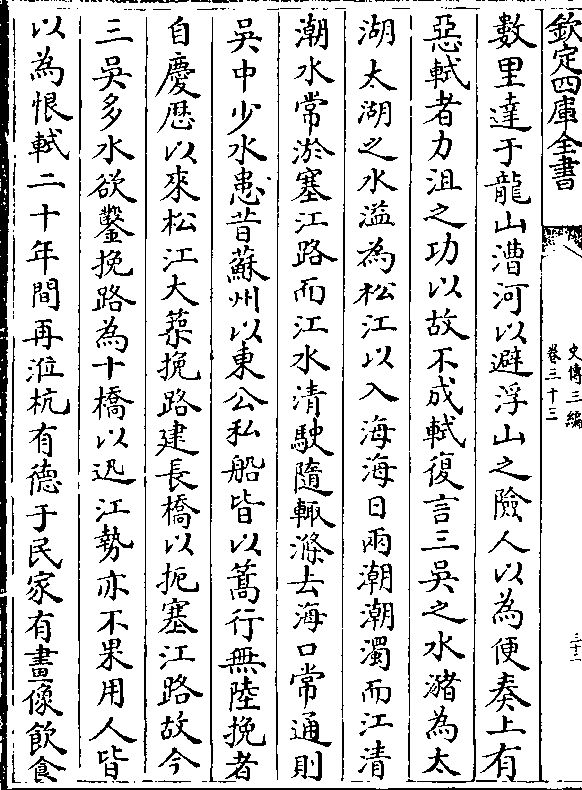 欽定四庫全書
史傳三編
卷三十三
三十二
數里達于龍山漕河以避浮山之險人以為便奏上有
惡軾者力沮之功以故不成軾復言三吳之水瀦為太
湖太湖之水溢為松江以入海海日兩潮潮濁而江清
潮水常淤塞江路而江水清駛隨輙滌去海口常通則
吳中少水患昔蘇州以東公私船皆以篙行無陸挽者
自慶厯以來松江大築挽路建長橋以扼塞江路故今
三吳多水欲鑿挽路為十橋以迅江勢亦不果用人皆
以為恨軾二十年間再涖杭有德于民家有畫像飲食